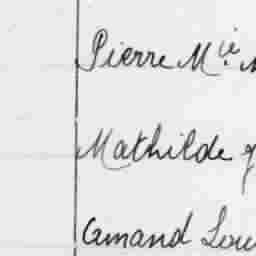 Pierre Mie
Mathilde
Amand Lou